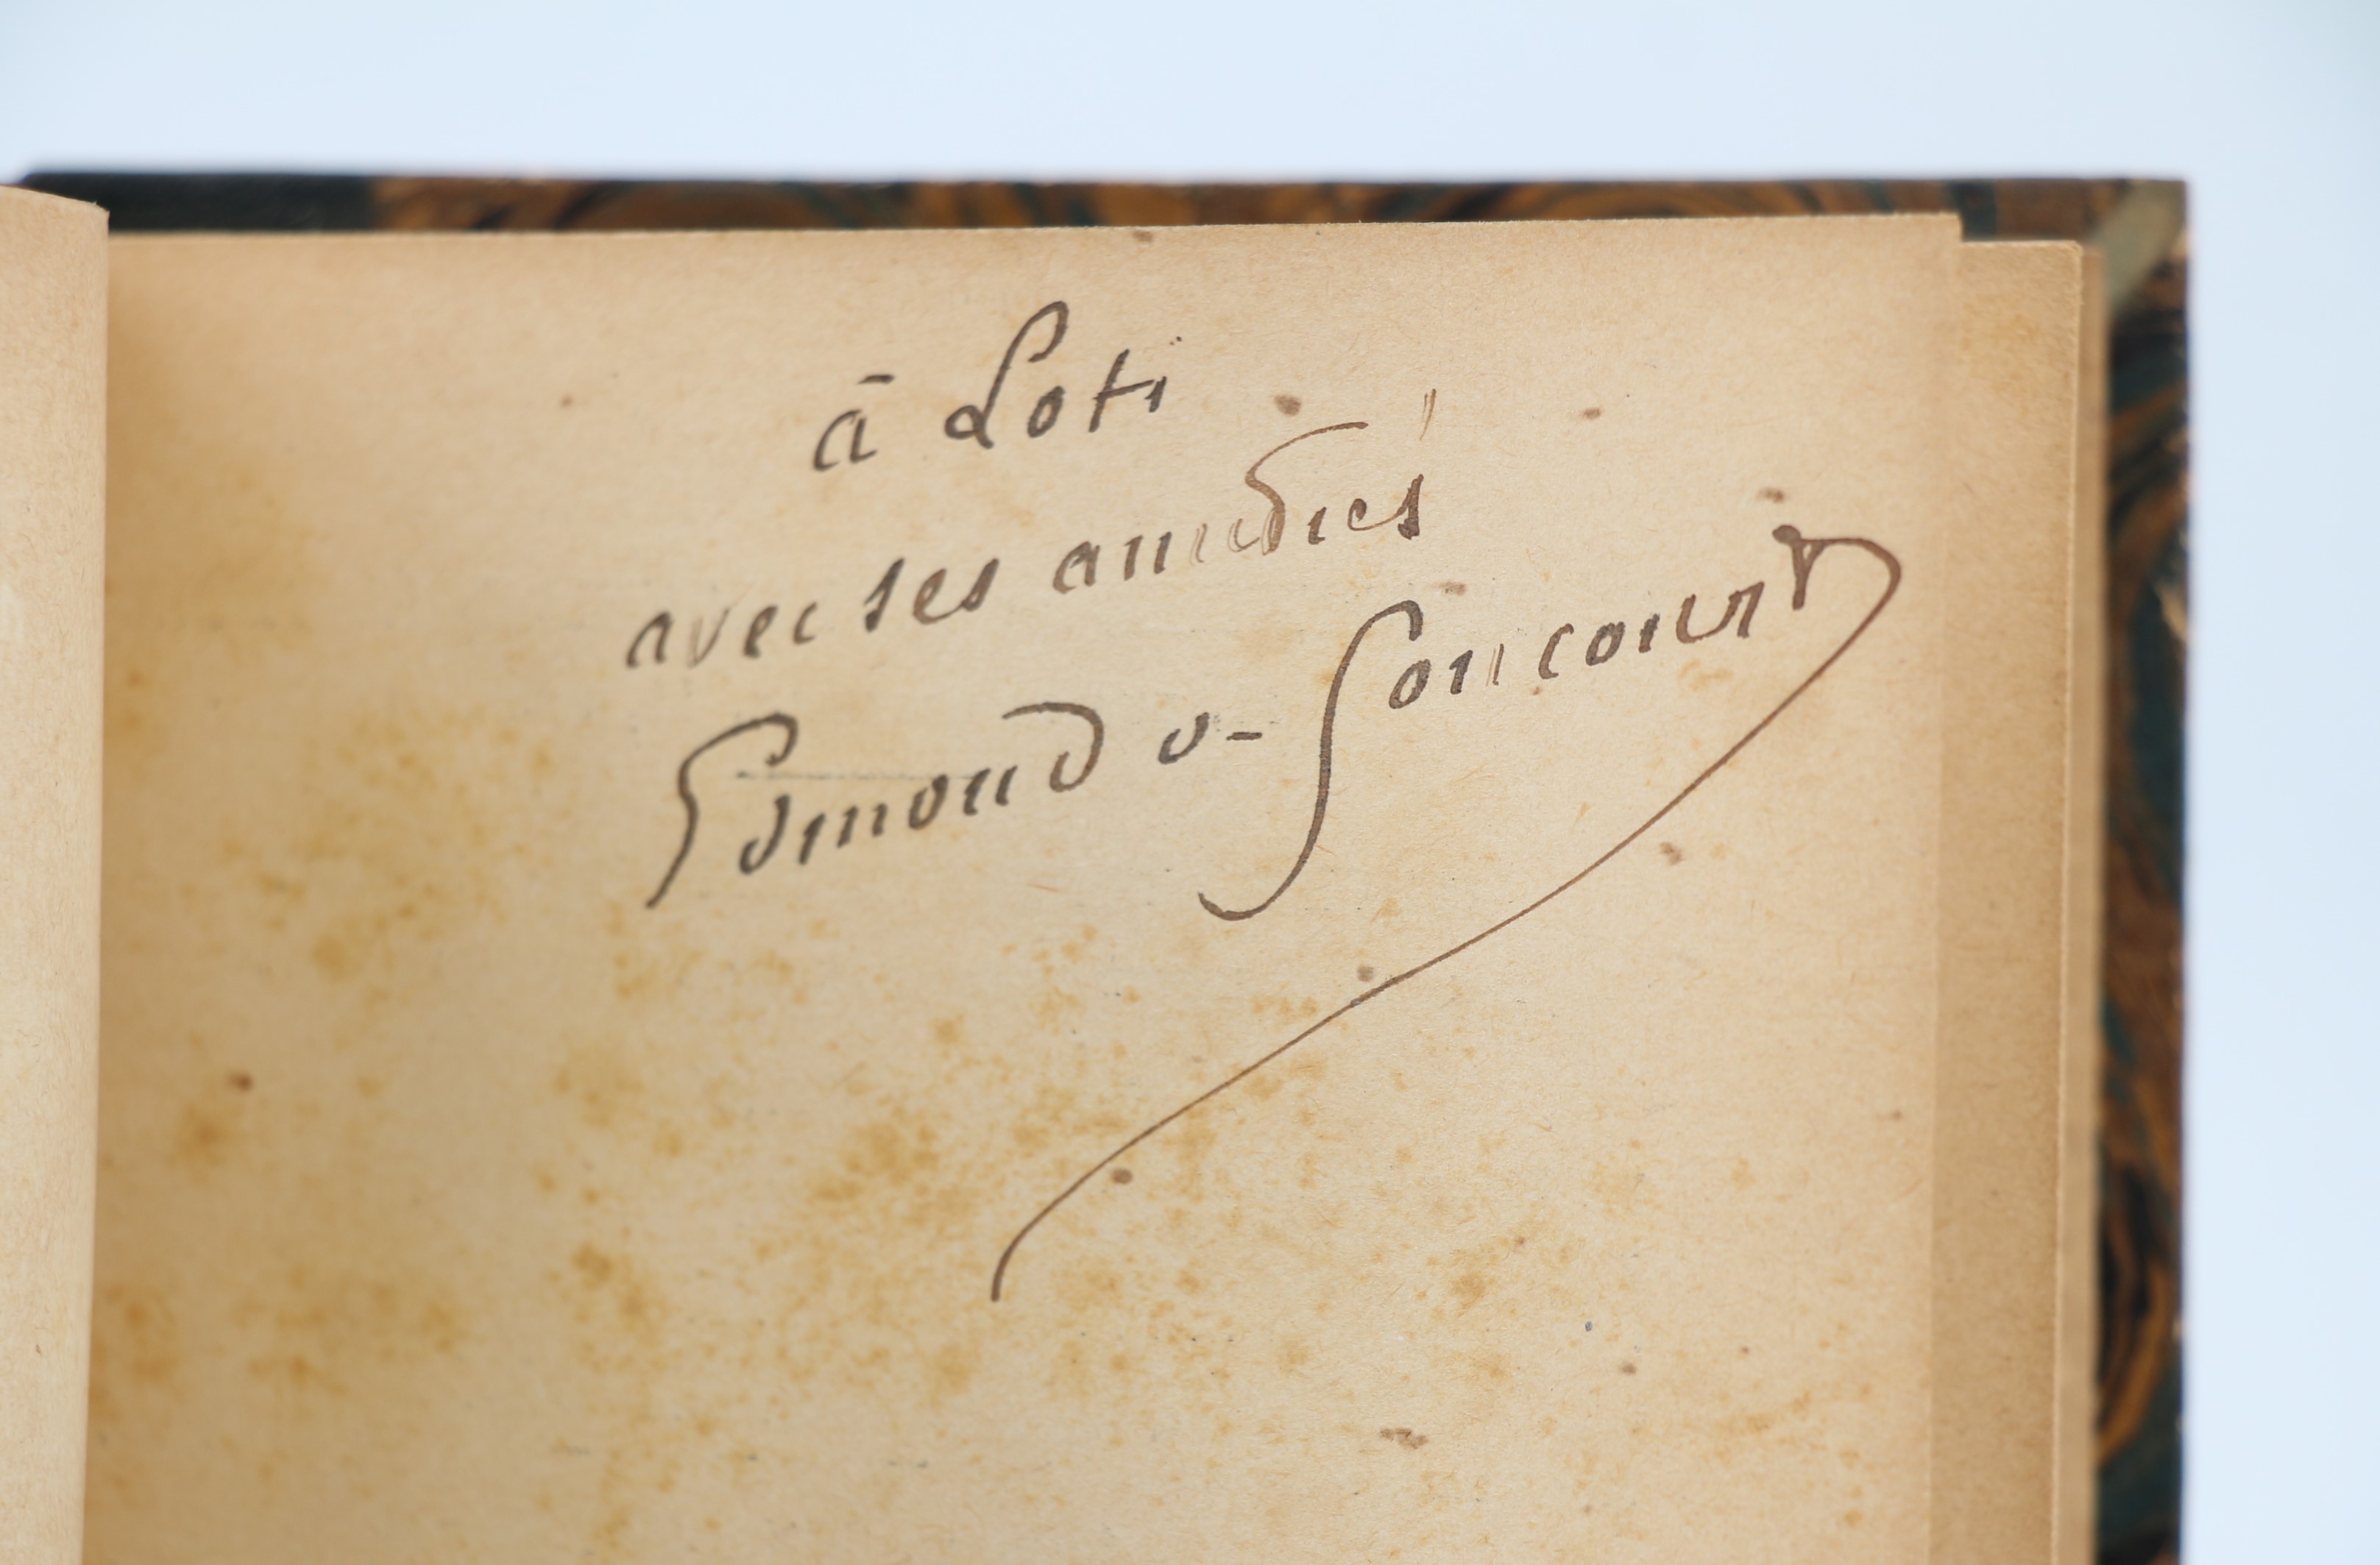 à Loti
avec ses amitiés
Edmond de Goncourt